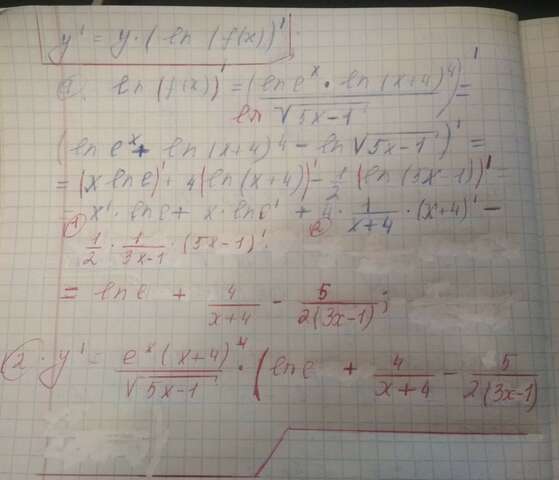 y' = y · (ln (f(x))'
1. ln (f(x))' = (ln e^x · ln (x+4)^4 / ln √5x-1)' =
(ln e^x + ln (x+4)^4 - ln √5x-1)' =
= (x ln e)' + 4(ln (x+4))' - 1/2 (ln (3x-1))' =
= x' · ln e + x · ln e' + 4 · 1/(x+4) · (x+4)' -
1/2 · 1/(3x-1) · (5x-1)'
= ln e + 4/(x+4) - 5/(2(3x-1));
2. y' = e^x (x+4)^4 / √5x-1 · (ln e + 4/(x+4) - 5/(2(3x-1)